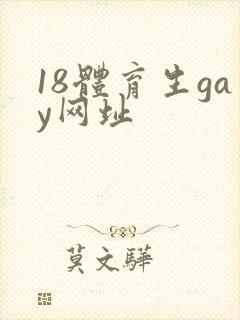 18體育生ga
y网址
莫文驊